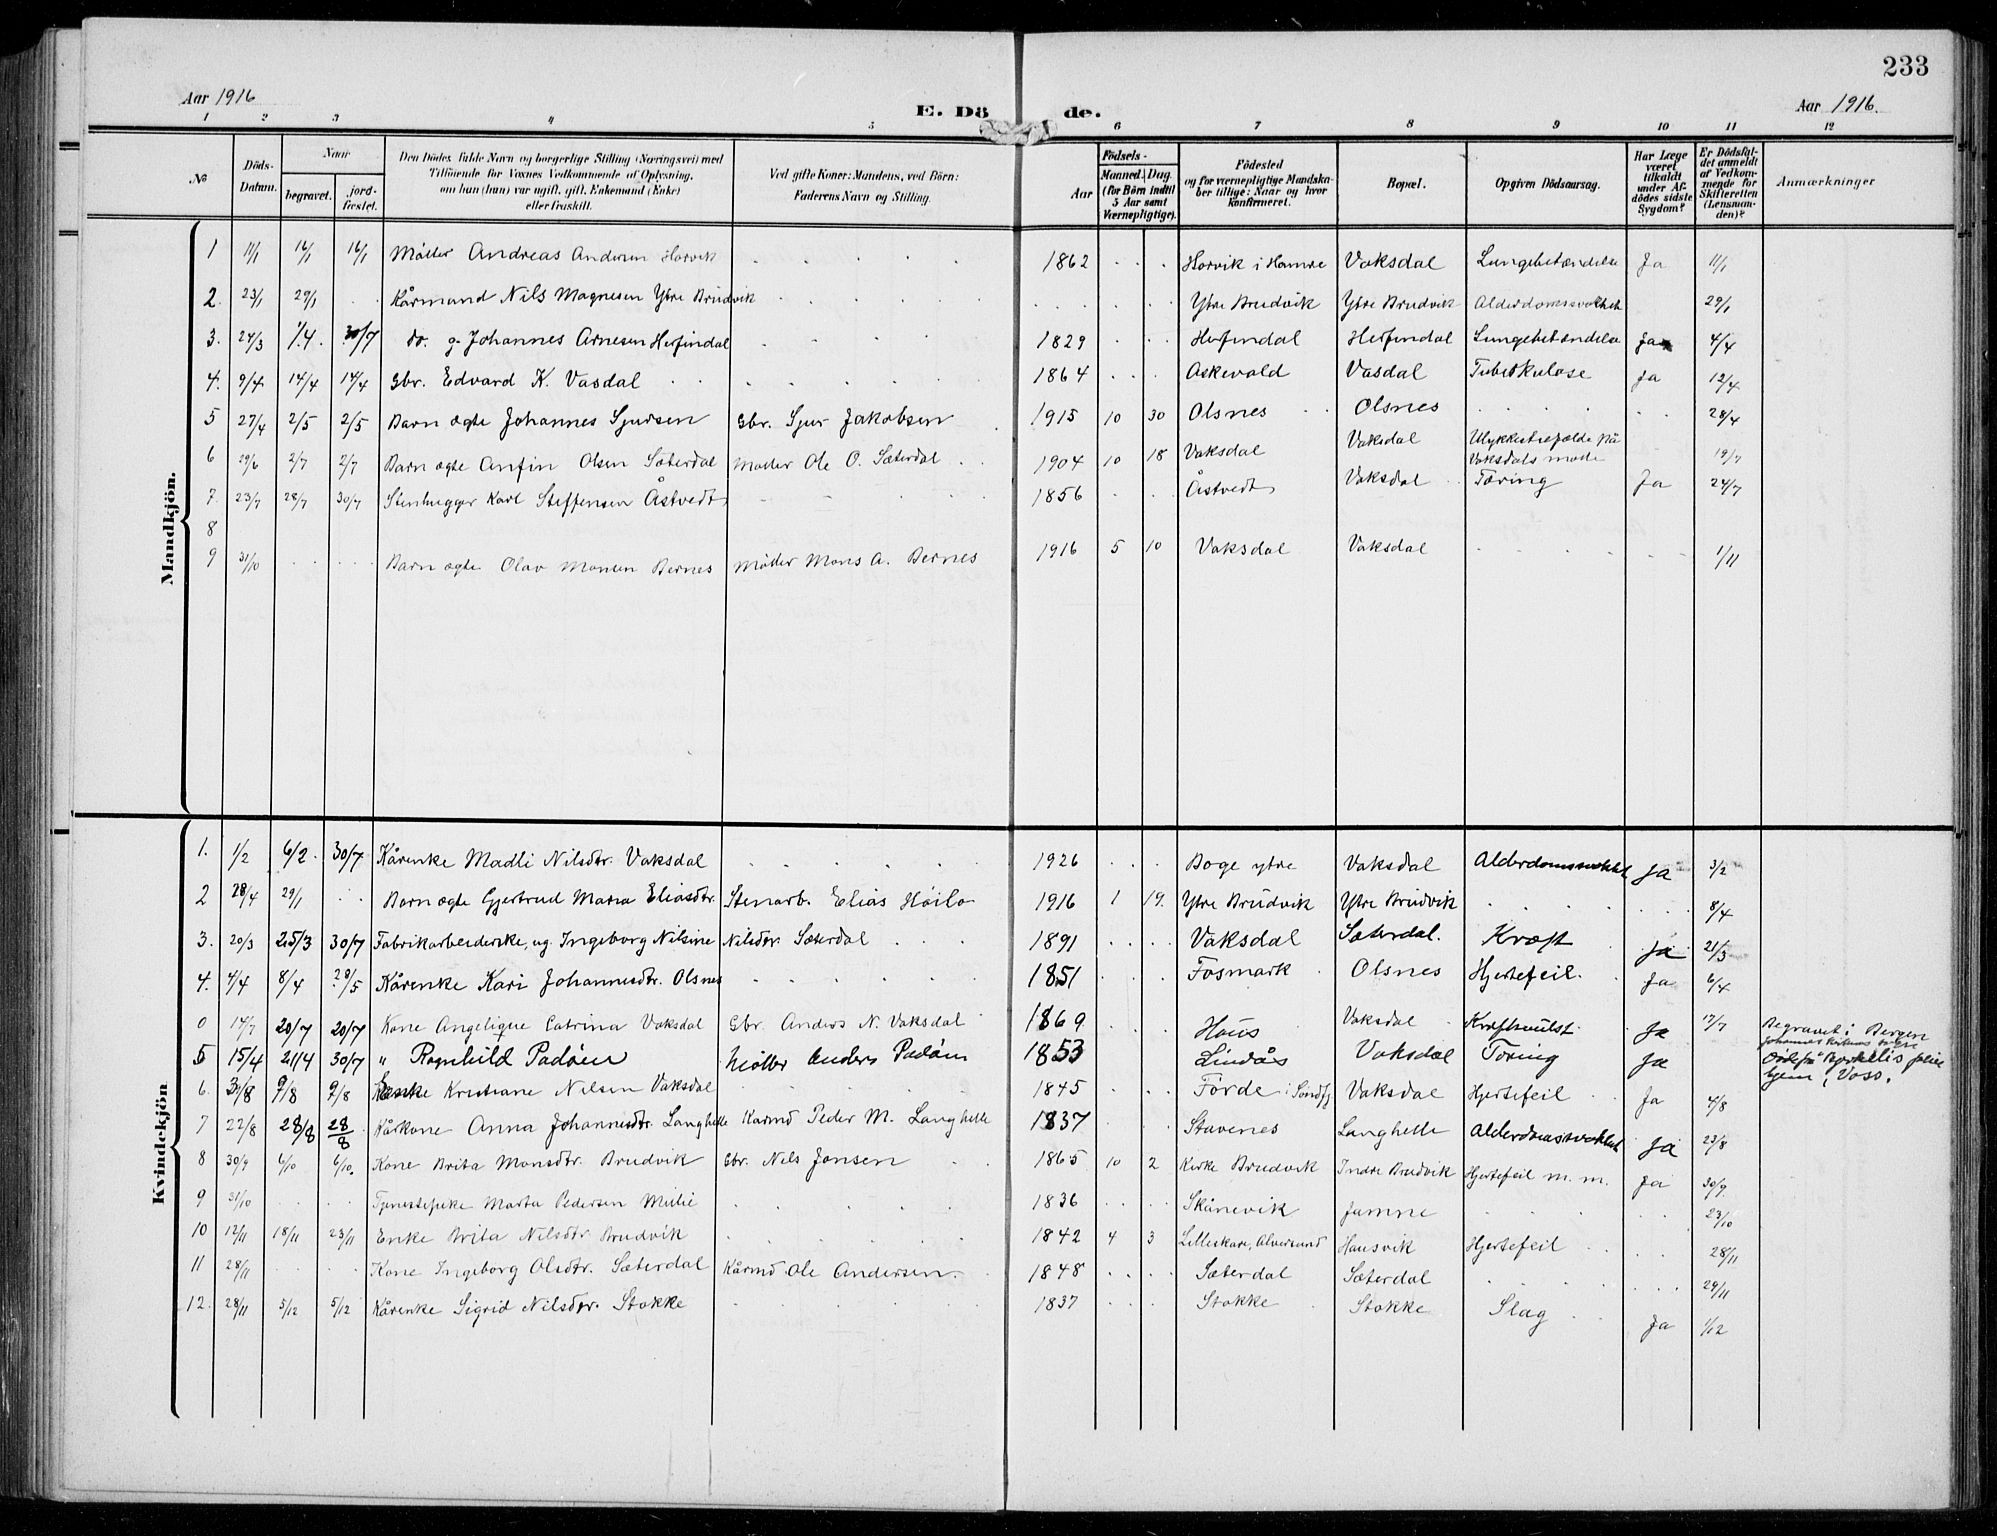 233
Aar 1916
E. Dö de.
Aar 1916.
1 2 3 4 5 6 7 8 9 10 11 12
No
Döds-Datum.
Naar
begravet.
jord-fæstet.
Den Dödes fulde Navn og borgerlige Stilling (Næringsvei) med Tilföiende for Voxnes Vedkommende af Oplysning, om han (hun) var ugift, gift, Enkemand (Enke) eller fraskilt.
Ved gifte Koner: Mandens, ved Börn: Faderens Navn og Stilling.
Födsels-
Aar
Maaned. Dag. (for Börn indtil 5 Aar samt Værnepligtige).
Födested og for værnepligtige Mandskaber tillige: Naar og hvor konfirmeret.
Bopæl.
Opgiven Dödsaarsag.
Har Læge været tilkaldt under Afdödes sidste Sygdom?
Er Dödsfaldet anmeldt af Vedkommende for Skifteretten (Lensmanden)?
Anmærkninger
Mandkjön.
1 11/1 16/1 16/1 Möller Andreas Andersen Horvik 1862 Horvik i Hamre Vaksdal Lungebetændelse Ja 11/1
2. 23/1 29/1 Kårmand Nils Magnesen Ytre Brudvik Ytre Brudvik Ytre Brudvik Alderdomssvakhet 29/1
3. 24/3 1/4. 30/7 do. g. Johannes Arnesen Herfindal 1829 Herfindal Herfindal Lungebetændelse Ja 4/4
4. 9/4 14/4 14/4 Gbr. Edvard K. Vasdal 1864 Askevold Vasdal Tuberkulose Ja 12/4
5 27/4 2/5 2/5 Barn ægte Johannes Sjursen Gbr. Sjur Jakobsen 1915 10 30 Olsnes Olsnes 28/4
6 29/6 2/7 2/7 Barn ægte Anfin Olsen Sæterdal Möller Ole O. Sæterdal 1904 10 18 Vaksdal Vaksdal Ulykkestilfælde på Vaksdals mölle 19/7
7. 23/7 28/7 30/7 Stenhugger Karl Steffensen Åstvedt 1856 Åstvedt Vaksdal Tæring Ja 24/7
8
9 31/10 Barn ægte Olav Monsen Bernes Möller Mons A. Bernes 1916 5 10 Vaksdal Vaksdal 1/11
Kvindekjön
1. 1/2 6/2. 30/7 Kårenke Madli Nilsdtr. Vaksdal 1926 Boge ytre Vaksdal Alderdomssvakhet Ja 3/2
2 28/4 29/1 Barn ægte Gjertrud Maria Eliasdtr. Stenarb. Elias Höilo 1916 1 19. Ytre Brudvik Ytre Brudvik 8/4
3. 20/3 25/3 30/7 Fabrikarbeiderske, ug. Ingeborg Nilsine Nilsdtr. Sæterdal 1891 Vaksdal Sæterdal. Kræft Ja 21/3
4. 1/4 8/4 28/5 Kårenke Kari Johannesdtr. Olsnes 1851 Fosmark Olsnes Hjertefeil. Ja 6/4
0 14/7 20/7 20/7 Kone Angelique Catrina Vaksdal Gbr. Anders N. Vaksdal 1869 Haus Vaksdal Kræftsvulst Ja 17/7 Begravet i Bergen
5 15/4 21/4 30/7 " Ragnhild Padöen Möller Anders Padöen 1853 Lindås Vaksdal Töring Ja hjem, Voss.
6. 31/8 9/8 9/8 Enke Kristiane Nilsen Vaksdal 1845 Förde i Söndfj. Vaksdal Hjertefeil Ja 4/8
7 22/8 28/8 28/8 Kårkone Anna Johannesdtr. Langhelle Karmd Peder M. Langhelle 1837 Stavenes Langhelle Alderdomssvakhet Ja 23/8
8 30/9 6/10 6/10. Kone Brita Monsdtr. Brudvik Gbr. Nils Jonsen 1865 10 2 Kirke Brudvik Indre Brudvik Hjertefeil m. m. Ja 30/9
9 31/10 Tjenestepike Marta Pedersen Milie 1836 Skånevik Jamne 23/10
10 12/11 18/11 23/11 Enke Brita Nilsdtr. Brudvik 1842 4 3 Lilleskare, Alversund Hausvik Hjertefeil 28/11
11 28/11 Kone Ingeborg Olsdtr. Sæterdal Kårmd Ole Andersen. 1848 Sæterdal Sæterdal 29/11
12. 28/11 5/12 5/12 Kårenke Sigrid Nilsdtr. Stokke 1837 Stokke Stokke Slag Ja 1/12